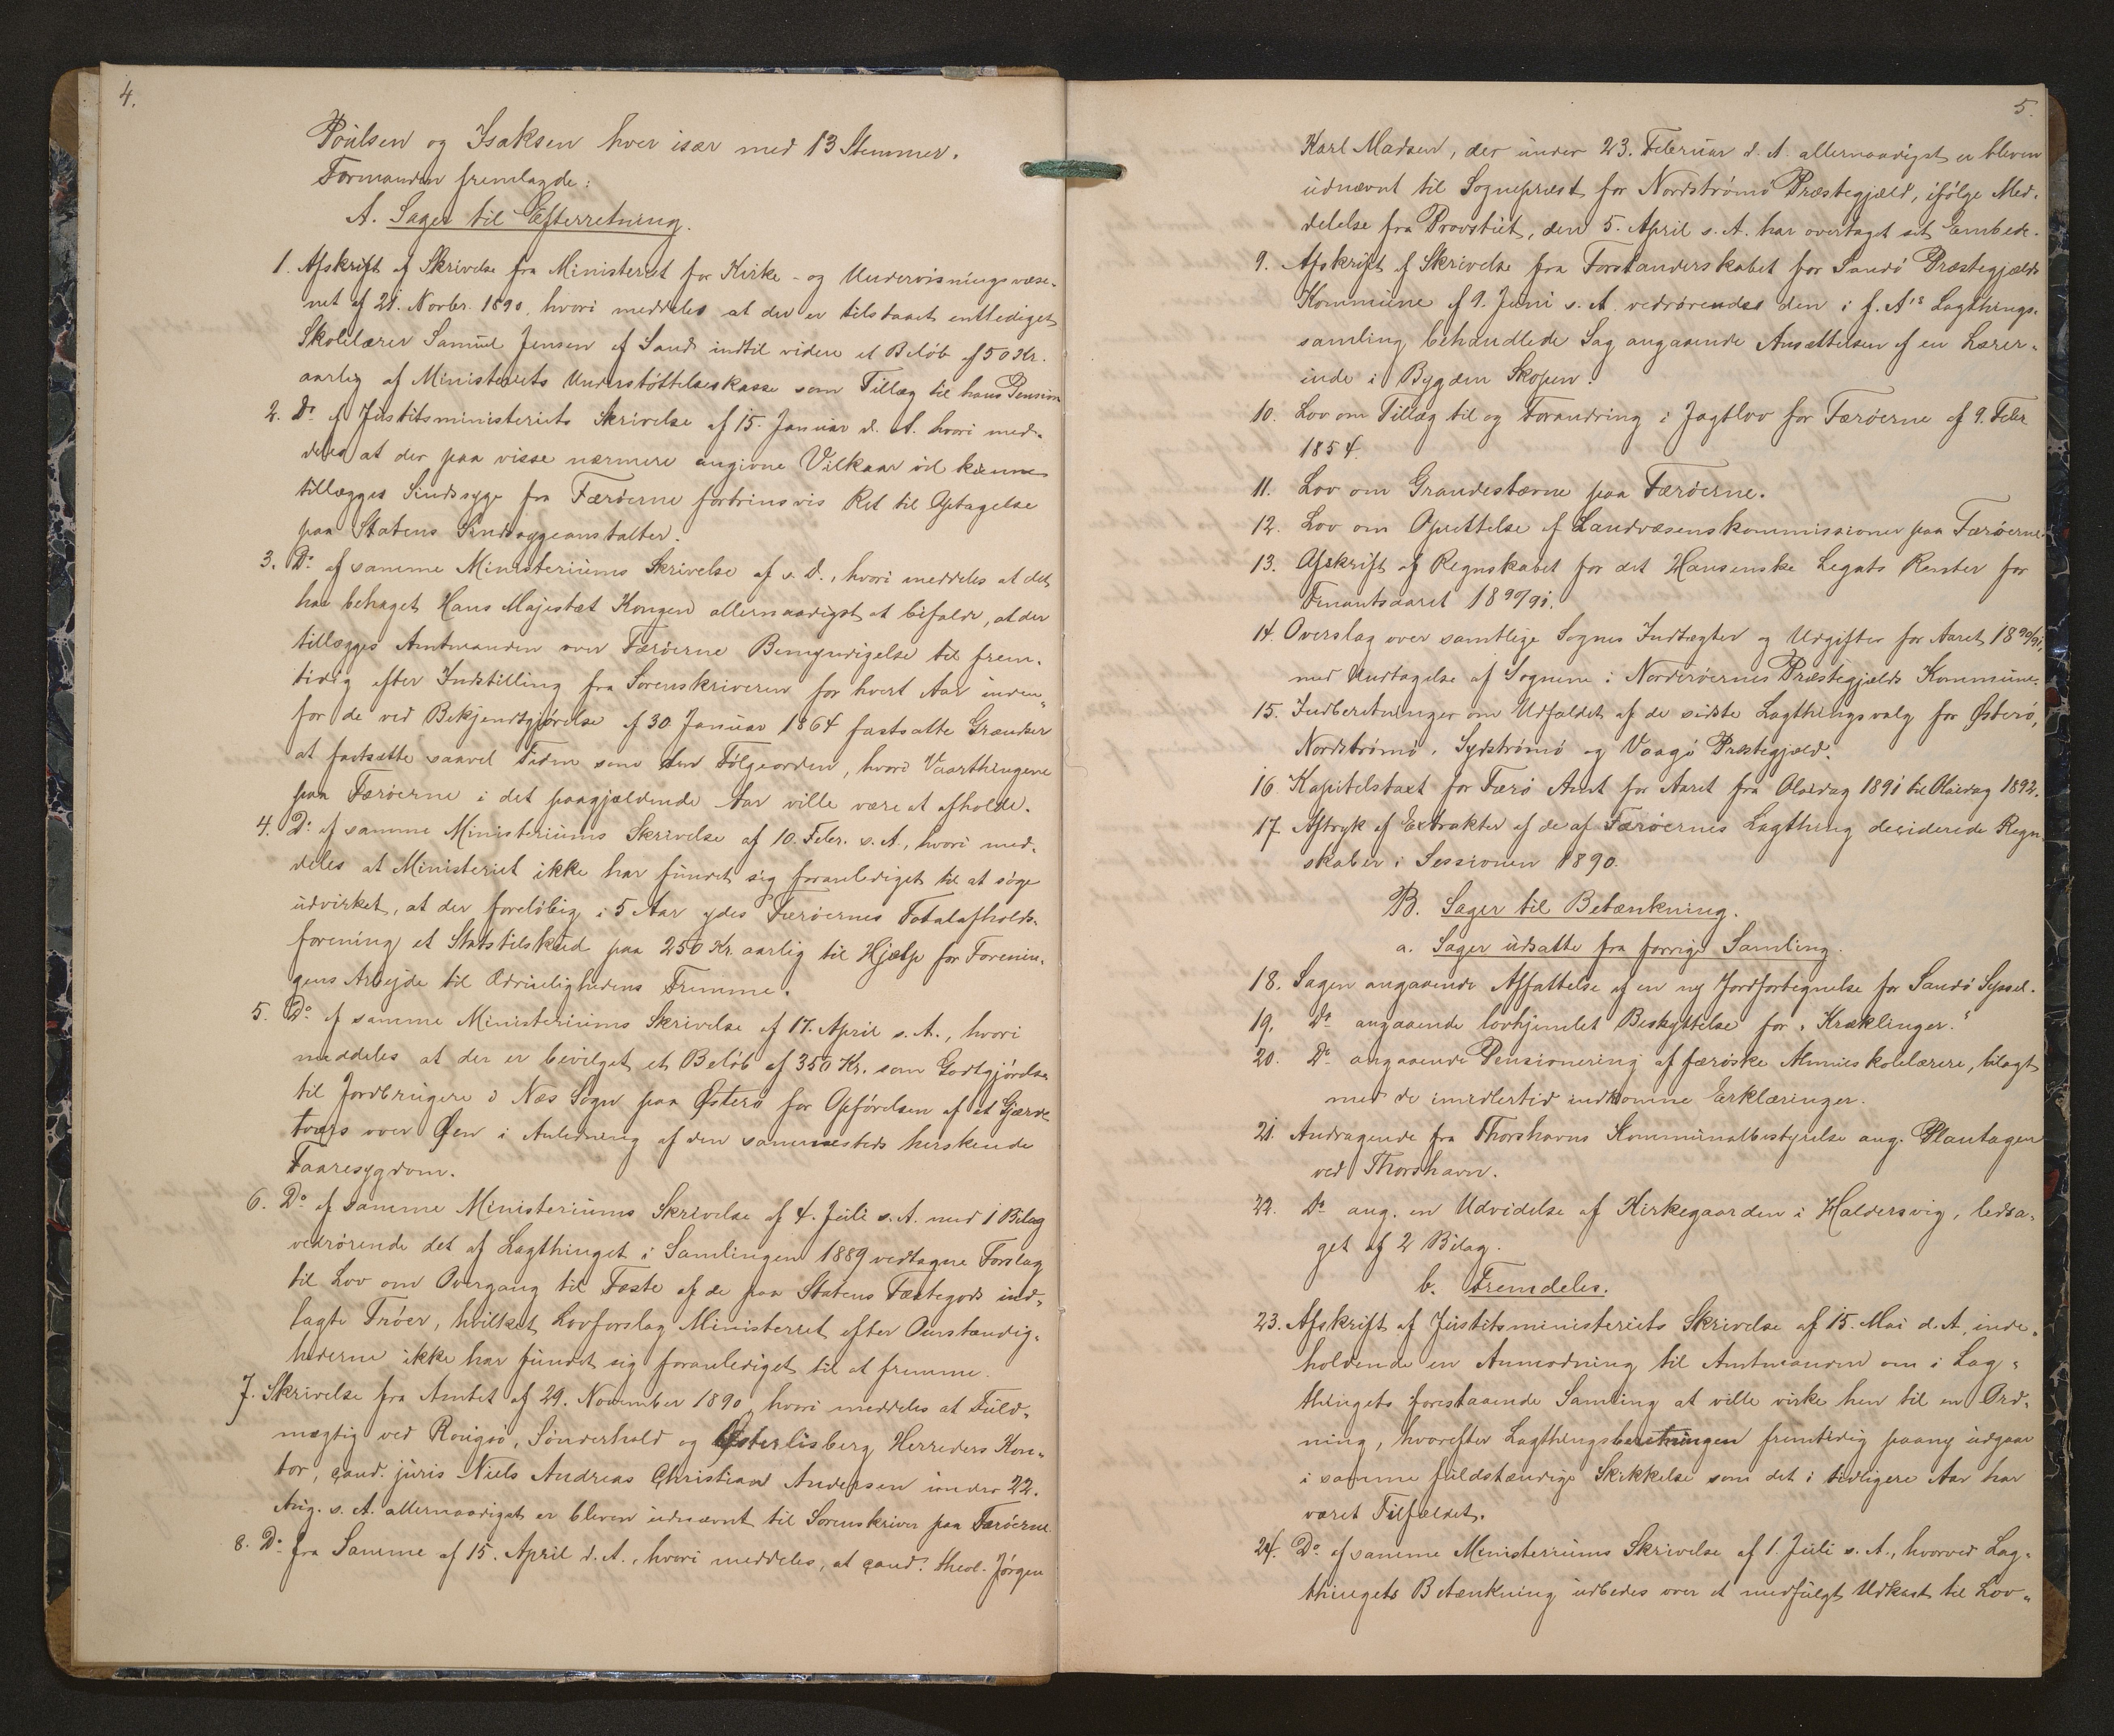 4.
Poulsen og Isaksen hver især med 13 Stemmer.
Formanden fremlagde:
A. Sager til Efterretning.
1. Afskrift af Skrivelse fra Ministeriet for Kirke- og Undervisningsvæse-
net af 21. Novbr. 1890, hvori meddeles at der er tilstaaet entlediget
Skolelærer Samuel Jensen af Sand indtil videre et Beløb af 50 Kr.
aarlig af Ministeriets Understøttelseskasse som Tillæg til hans Pension
2. Do af Justitsministeriets Skrivelse af 15. Januar d. A. hvori med-
deles at der paa visse nærmere angivne Vilkaar vil kunne
tillægges Sindssyge fra Færøerne fortrinsvis Ret til Optagelse
paa Statens Sindssygeanstalter.
3. Do af samme Ministeriums Skrivelse af s. D., hvori meddeles at det
har behaget Hans Majestæt Kongen allernaadigst at bifalde, at der
tillægges Amtmanden over Færøerne Bemyndigelse til frem-
tidig efter Indstilling fra Sorenskriveren for hvert Aar inden-
for de ved Bekjendtgjørelse af 30 Januar 1864 fastsatte Grændser
at fastsætte saavel Tiden som den Følgeorden, hvori Vaarthingene
paa Færøerne i det paagjældende Aar ville være at afholde.
4. Do af samme Ministeriums Skrivelse af 10. Febr. s. A., hvori med-
deles at Ministeriet ikke har fundet sig foranlediget til at søge
udvirket, at der foreløbig i 5 Aar ydes Færøernes Totalafholds-
forening et Statstilskud paa 250 Kr. aarlig til Hjælp for Forenin-
gens Arbejde til Ædruelighedens Fremme.
5. Do af samme Ministeriums Skrivelse af 17. April s. A., hvori
meddeles at der er bevilget et Beløb af 350 Kr. som Godtgjørelse
til Jordbrugere i Næs Sogn paa Østerø for Opførelsen af et Gjærde
tværs over Øen i Anledning af den sammesteds herskende
Faaresygdom.
6. Do af samme Ministeriums Skrivelse af 4. Juli s. A. med 1 Bilag
vedrørende det af Lagthinget i Samlingen 1889 vedtagne Forslag
til Lov om Overgang til Fæste af de paa Statens Fæstegods ind-
lagte Trøer, hvilket Lovforslag Ministeriet efter Omstændig-
hederne ikke har fundet sig foranlediget til at fremme.
7. Skrivelse fra Amtet af 29. November 1890, hvori meddeles at Fuld-
mægtig ved Rougsø, Sønderhald og Østerlisberg Herreders Kon-
tor, cand. juris Niels Andreas Christian Andersen under 22.
Aug. s. A. allernaadigst er bleven udnævnt til Sorenskriver paa Færøerne.
8. Do fra Samme af 15. April d. A., hvori meddeles, at cand. theol. Jørgen
5.
Karl Madsen, der under 23. Februar d. A. allernaadigst er bleven
udnævnt til Sognepræst for Nordstrømø Præstegjæld, ifølge Med-
delelse fra Provstiet, den 5. April s. A. har overtaget sit Embede.
9. Afskrift af Skrivelse fra Forstanderskabet for Sandø Præstegjælds
Kommune af 9. Juni s. A. vedrørende den i f. A's Lagthings-
samling behandlede Sag angaaende Ansættelsen af en Lærer-
inde i Bygden Skopen.
10. Lov om Tillæg til og Forandring i Jagtlov for Færøerne af 9. Febr
1854.
11. Lov om Grandestævne paa Færøerne.
12. Lov om Oprettelse af Landvæsenskommissioner paa Færøerne.
13. Afskrift af Regnskabet for det Hansenske Legats Renter for
Finantsaaret 1890/91.
14. Overslag over samtlige Sognes Indtægter og Udgifter for Aaret 1890/91,
med Undtagelse af Sognene i Norderøernes Præstegjælds Kommune.
15. Indberetninger om Udfaldet af de sidste Lagthingsvalg for Østerø,
Nordstrømø, Sydstrømø og Vaagø Præstegjæld.
16. Kapitelstaxt for Færø Amt for Aaret fra Olaidag 1891 til Olaidag 1892.
17. Aftryk af Extrakter af de af Færøernes Lagthing deciderede Regn-
skaber i Sessionen 1890.
B. Sager til Betænkning.
a. Sager udsatte fra forrige Samling.
18. Sagen angaaende Affattelse af en ny Jordfortegnelse for Sandø Syssel.
19. Do angaaende lovhjemlet Beskyttelse for „Kræklinger."
20. Do angaaende Pensionering af færøske Almueskolelærere, bilagt
med de imidlertid indkomne Erklæringer.
21. Andragende fra Thorshavns Kommunalbestyrelse ang. Plantagen
ved Thorshavn.
22. Do ang. en Udvidelse af Kirkegaarden i Haldersvig, ledsa-
get af 2 Bilag.
b. Fremdeles.
23. Afskrift af Justitsministeriets Skrivelse af 15. Mai d. A. inde-
holdende en Anmodning til Amtmanden om i Lag-
thingets forestaaende Samling at ville virke hen til en Ord-
ning, hvorefter Lagthingsberetningen fremtidig paany udgaar
i samme fuldstændige Skikkelse som det i tidligere Aar har
været Tilfældet.
24. Do af samme Ministeriums Skrivelse af 1. Juli s. A., hvorved Lag-
thingets Betænkning udbedes over et medfulgt Udkast til Lov-